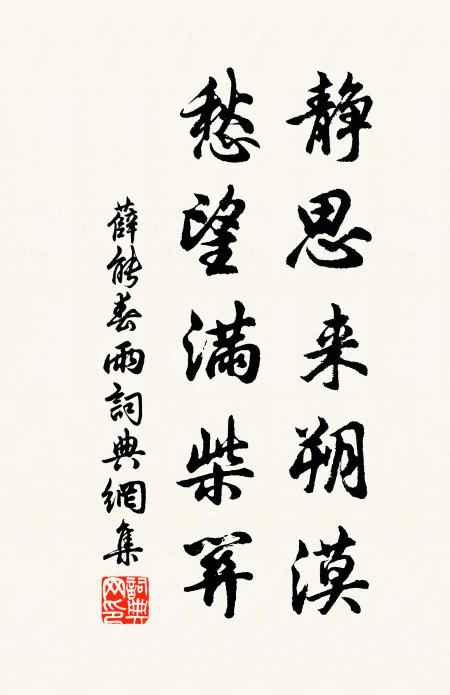 静思来朔漠
愁望满柴关
薛能春雨詞典網集
詞典网印